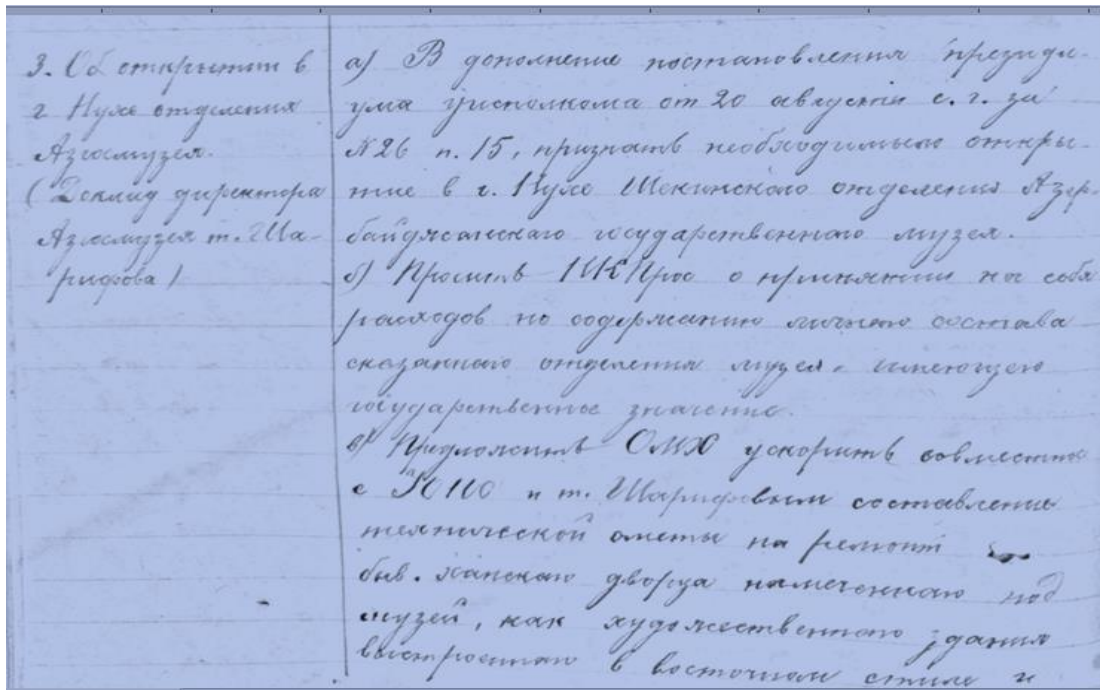 3. Об открытии в
г. Нухе отделения
Азгосмузея.
(Доклад директора
Азгосмузея т. Ша-
рифова)
а) В дополнение постановления президи-
ума уисполкома от 20 августа с. г. за
№ 26 п. 15, признать необходимым откры-
тие в г. Нухе Шекинского отделения Азер-
байджанскаго государственнаго музея.
б) Просить НКПрос о принятии на себя
расходов по содержанию личнаго состава
сказаннаго отделения музея, имеющего
государственное значение.
в) Предложить ОМХ ускорить совместно
с УОНО и т. Шарифовым составление
технической сметы на ремонт
быв. ханскаго дворца намеченнаго под
музей, как художественнаго здания
выстроеннаго в восточном стиле и